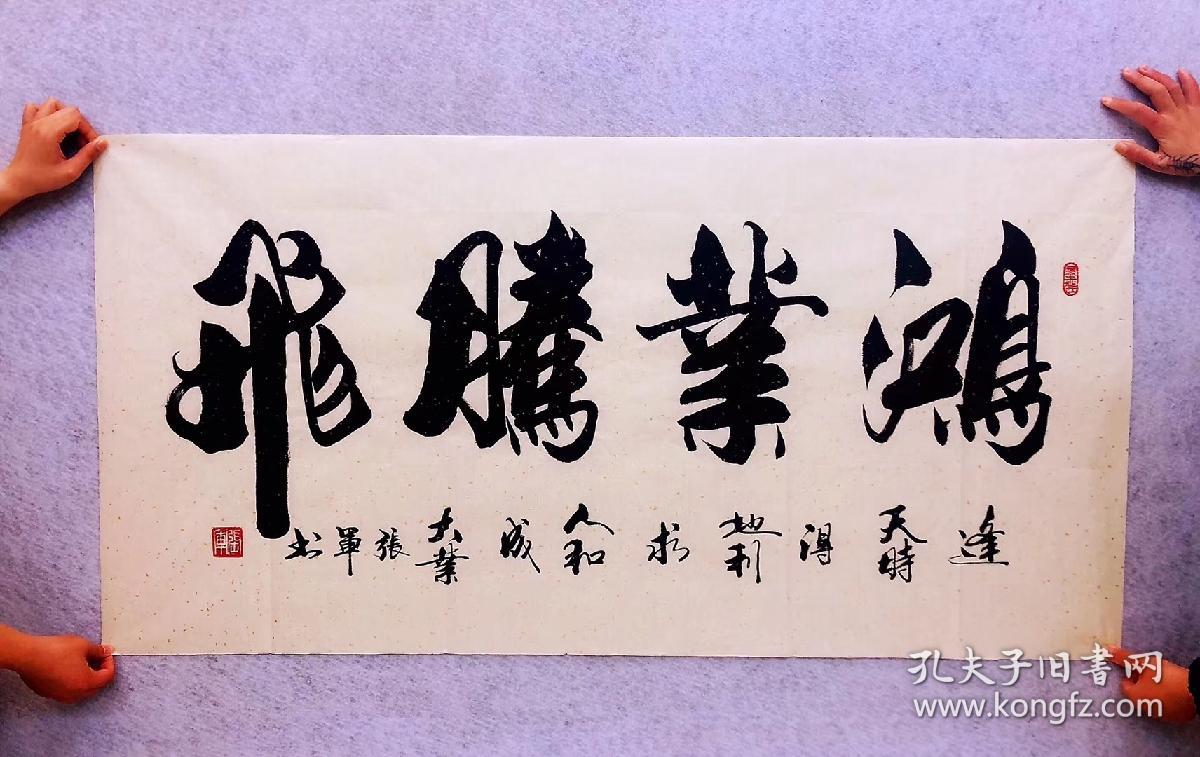 鴻業騰飛
逢天時得地利求人和成大業張軍书
孔夫子旧書网
www.kongfz.com